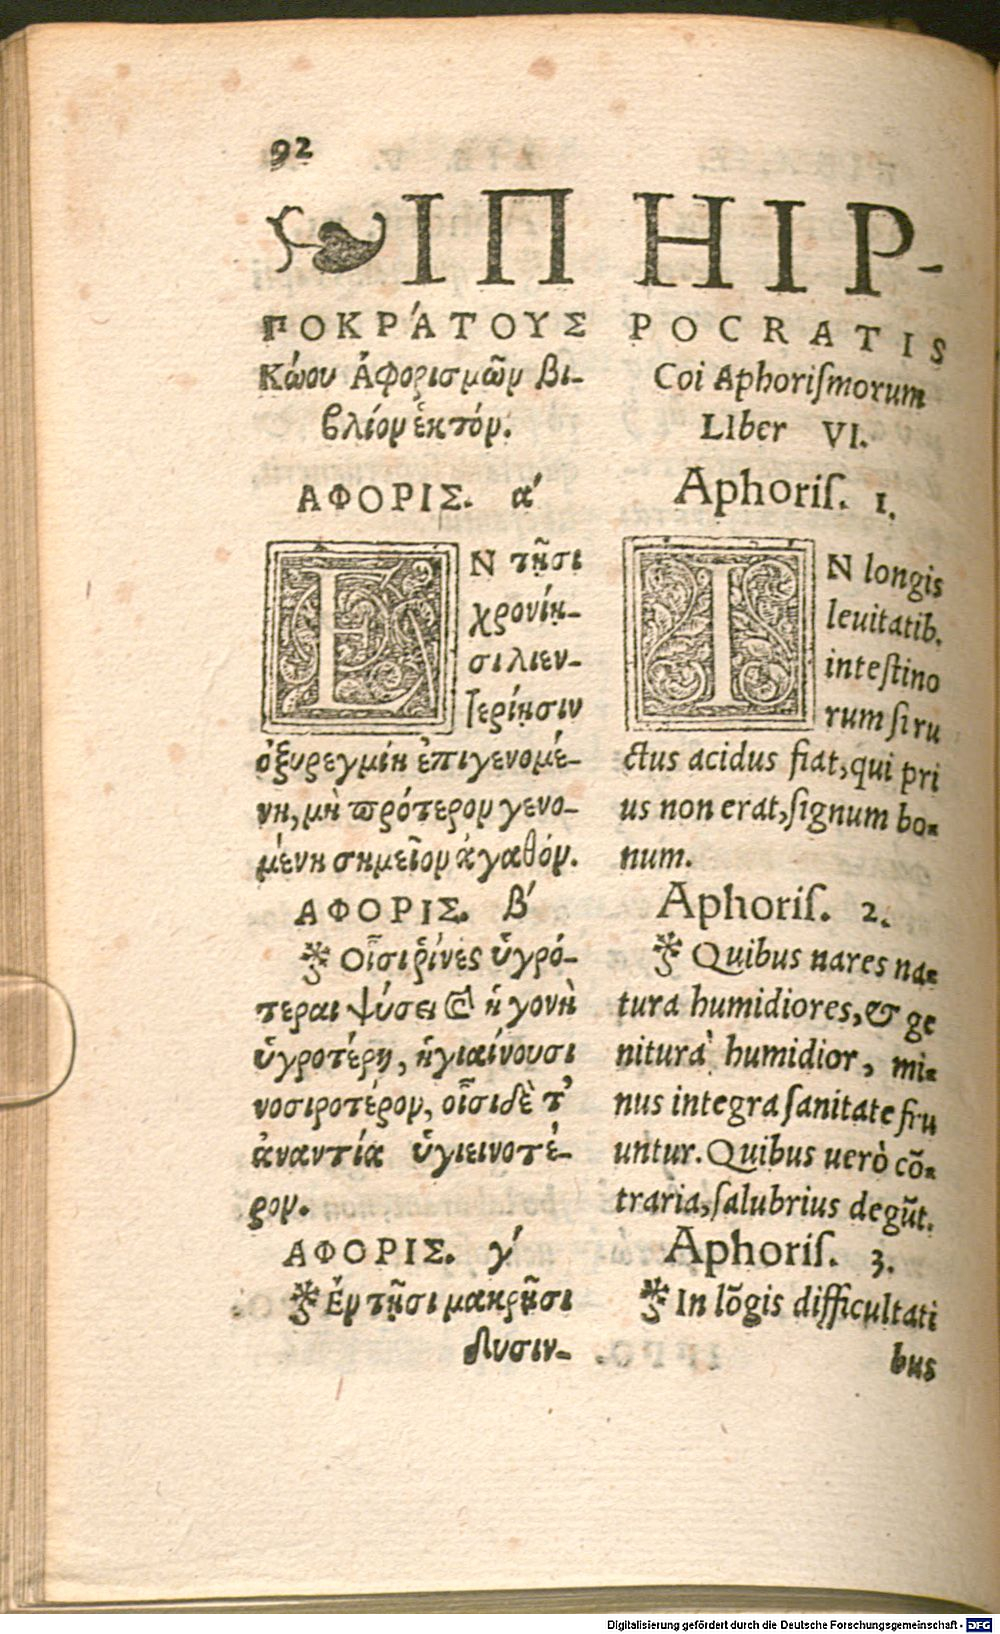 92
ΙΠ
ΠΟΚΡΆΤΟΥΣ
Κώου Ἀφορισμῶν βι-
βλίον ἑκτόν.
ΑΦΟΡΙΣ. α'
ΕΝ τῇσι
χρονίῃ-
σι λιεν-
τερίῃσιν
ὀξυρεγμίη ἐπιγενομέ-
νη, μὴ πρότερον γενο-
μένη σημεῖον ἀγαθόν.
ΑΦΟΡΙΣ. β'
Οἷσι ῥῖνες ὑγρό-
τεραι φύσει καὶ ἡ γονὴ
ὑγροτέρη, ὑγιαίνουσι
νοσιροτέρον, οἷσι δὲ τ'
ἀναντία ὑγιεινοτέ-
ρον.
ΑΦΟΡΙΣ. γ'
Ἐν τῇσι μακρῇσι
δυσιν-
HIP-
POCRATIS
Coi Aphoriſmorum
LIber VI.
Aphoriſ. 1.
IN longis
leuitatib.
inteſtino
rum ſi ru
ctus acidus fiat, qui pri
us non erat, ſignum bo-
num.
Aphoriſ. 2.
Quibus nares na-
tura humidiores, & ge
nitura humidior, mi-
nus integra ſanitate fru
untur. Quibus uerò cõ-
traria, ſalubrius degũt.
Aphoriſ. 3.
In lõgis difficultati
bus
Digitalisierung gefördert durch die Deutsche Forschungsgemeinschaft - DFG